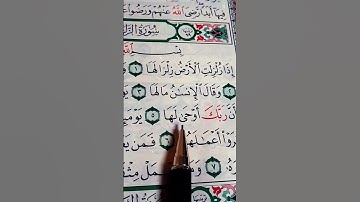 فِيهَا أَبَدًا رَّضِيَ اللَّهُ عَنْهُمْ وَرَضُوا
سُورَةُ الزَّ
بِسْمِ اللَّهِ
إِذَا زُلْزِلَتِ الْأَرْضُ زِلْزَالَهَا ١
٢ وَقَالَ الْإِنسَانُ مَا لَهَا ٣ يَوْ
أَنَّ رَبَّكَ أَوْحَىٰ لَهَا ٥ يَوْمَئِ
رَوْا أَعْمَالَهُمْ ٦ فَمَن يَعْ
هُ ٧ وَمَن يَعْمَلْ مِثْ